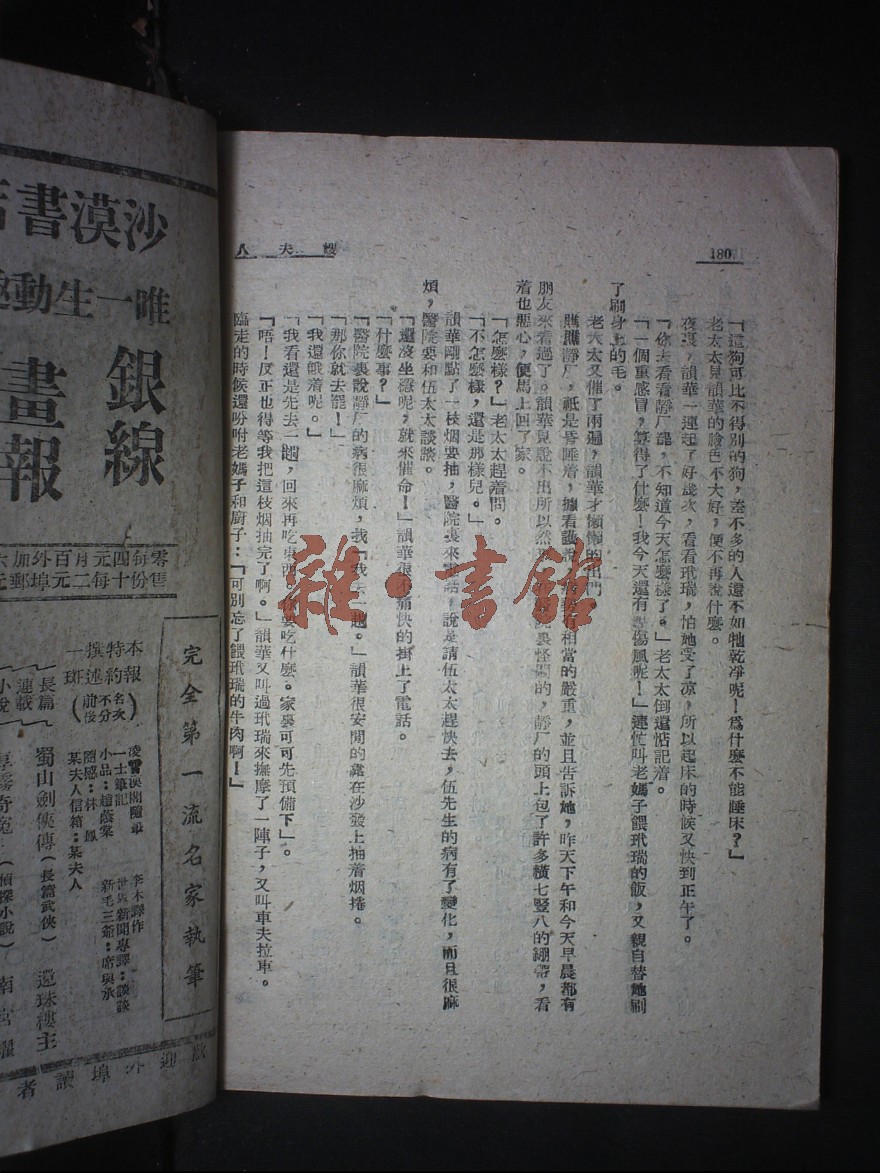 180
嫂夫人
「這狗可比不得別的狗，差不多的人還不如牠乾凈呢！爲什麼不能睡床？」
老太太見韻華的臉色不大好，便不再說什麼。
夜裏，韻華一連起了好幾次，看看玳瑞，怕她受了凉，所以起床的時候又快到正午了。
「你去看看靜厂罷，不知道今天怎麼樣了。」老太太倒還惦記着。
「一個重感冒，算得了什麼！我今天還有點傷風呢！」連忙叫老媽子餵玳瑞的飯，又親自替她刷
了刷身上的毛。
老太太又催了兩遍，韻華才懶懶的出門
瞧瞧靜厂，祗是昏睡着，據看護
有相當的嚴重，並且告訴她，昨天下午和今天早晨都有
朋友來看過了。韻華見說不出所以然
裏怪悶的，靜厂的頭上包了許多橫七豎八的綳帶，看
着也惡心，便馬上回了家。
「怎麼樣？」老太太趕着問。
「不怎麼樣，還是那樣兒。」
韻華剛點了一枝烟要抽，醫院裏來電話，說是請伍太太趕快去，伍先生的病有了變化，而且很麻
煩，醫院要和伍太太談談。
「還沒坐穩呢，就來催命！」韻華很不痛快的掛上了電話。
「什麼事？」
「醫院裏說靜厂的病很麻煩，我
去一趟。」韻華很安閒的靠在沙發上抽着烟捲。
「那你就去罷！」
「我還餓着呢。」
「我看還是先去一趟，回來再吃東西，你要吃什麼。家裏可可先預備下」。
「唔！反正也得等我把這枝烟抽完了啊。」韻華又叫過玳瑞來撫摩了一陣子，又叫車夫拉車。
臨走的時候還吩咐老媽子和廚子：「可別忘了餵玳瑞的牛肉啊！」
雜·書館
沙漠書店
唯一生動
銀線
畫報
零售每份四元
每月十二元
外埠加郵
完全第一流名家執筆
本報特約撰述一班（名次不分前後）
一士筆記
隨感：林鳳
某夫人信箱：某夫人
李木譯作
世界新聞專譯：談談
新毛三爺：席與承
長篇連載
蜀山劍俠傳（長篇武俠）還珠樓主
（偵探小說）南宮
歡迎外埠讀者